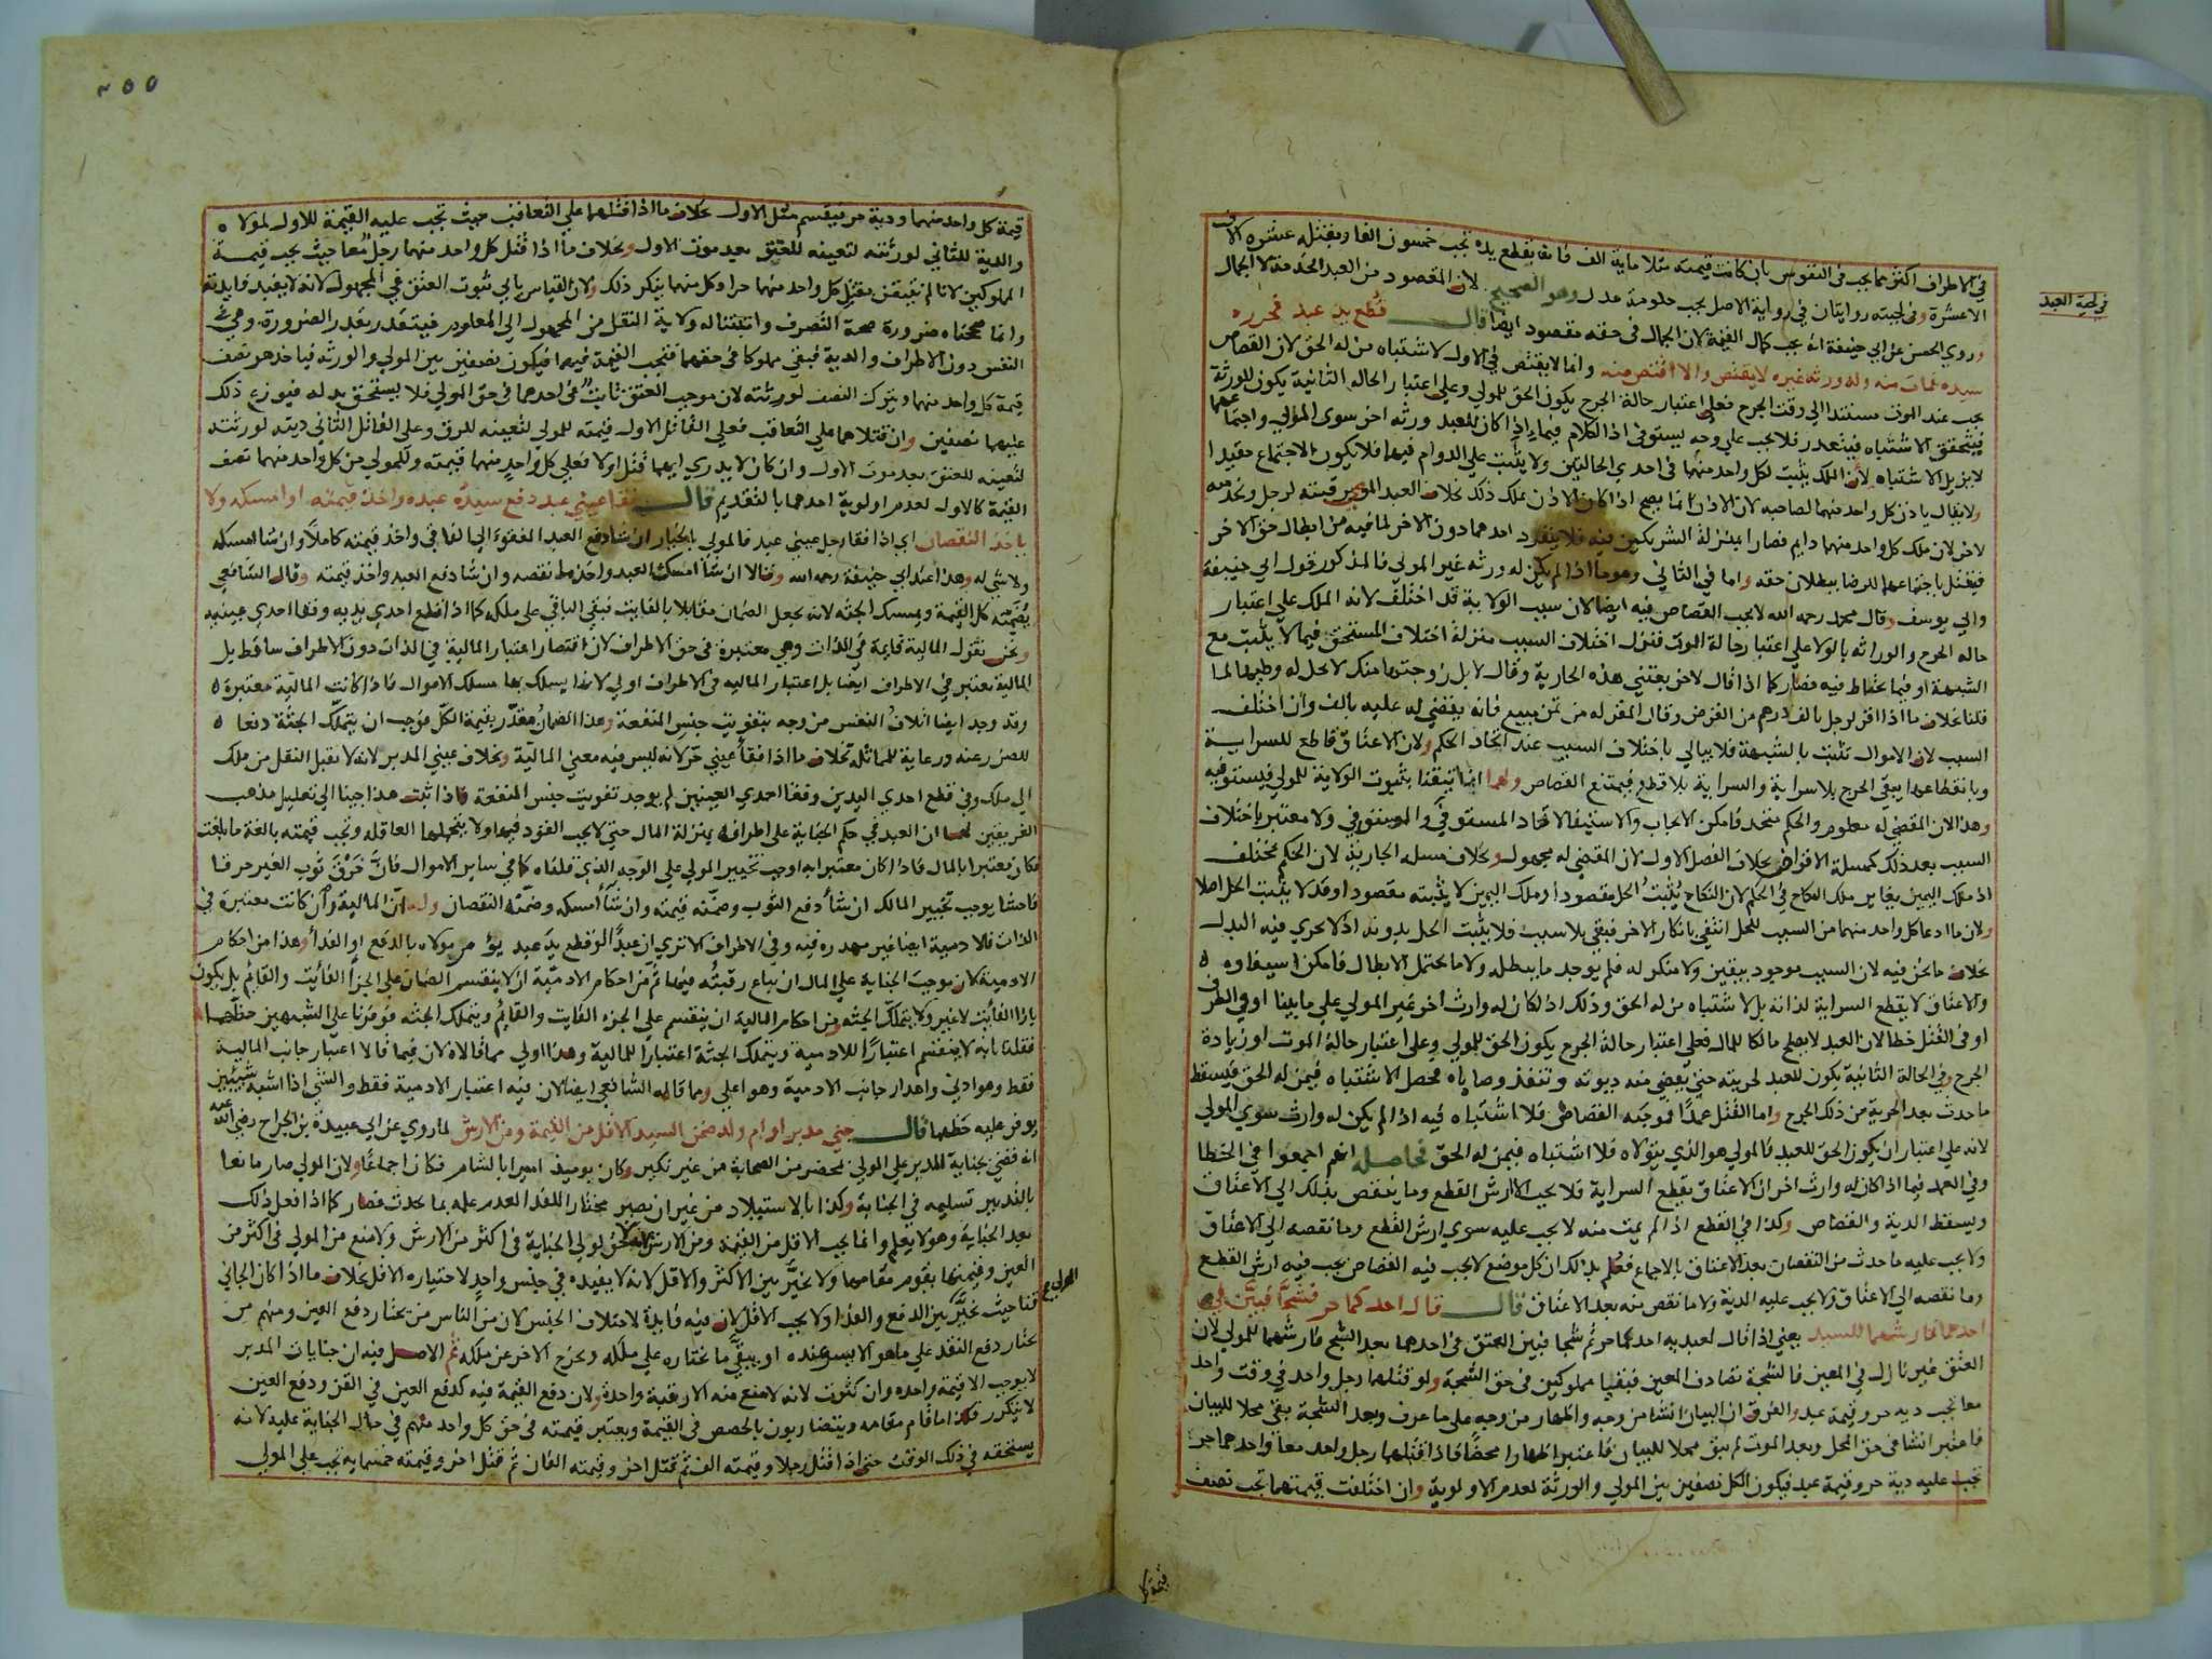 في الاطراف اكثر مما يجب في النفوس بان كانت قيمته مثلا ماية الف فانه بقطع يده تجب خمسون الفا وبقتله عشرة الاف
الا عشرة وفي لحيته روايتان في رواية الاصل يجب حكومة عدل وهو الصحيح لان المقصود من العبد الخدمة لا الجمال
في لحية العبد
وروي الحسن عن ابي حنيفة انه يجب كمال القيمة لان الجمال في حقه مقصود ايضا قال قطع يد عبد فحرره
سيده فمات منه وله ورثة غيره لا يقتص والا اقتص منه وانما لا يقتص في الاول لاشتباه من له الحق لان القصاص
يجب عند الموت مستندا الى وقت الجرح فعلى اعتبار حالة الجرح يكون الحق للمولي وعلى اعتبار الحالة الثانية يكون للورثة
فيتحقق الاشتباه فيتعذر فلا يجب على وجه يستوفى اذ الكلام فيما اذا كان للعبد ورثة اخر سوى المولي واجتماعهما
لا يزيل الاشتباه لان الملك يثبت لكل واحد منهما في احدي الحالتين ولا يثبت على الدوام فيهما فلا يكون الاجتماع مفيدا
ولا يقال ياذن كل واحد منهما لصاحبه لان الاذن انما يصح اذا كان الاذن يملك ذلك بخلاف العبد الموصي برقبته لرجل وبخدمته
لاخر لان ملك كل واحد منهما دايم فصارا بمنزلة الشريكين فيه فلا ينفرد احدهما دون الاخر لما فيه من ابطال حق الاخر
فيقتل باجتماعهما للرضا ببطلان حقه واما في الثاني وهو ما اذا لم يكن له ورثة غير المولي فالمذكور قول ابي حنيفة
وابي يوسف وقال محمد رحمه الله لا يجب القصاص فيه ايضا لان سبب الولاية قد اختلف لانه الملك على اعتبار
حالة الجرح والوراثة بالولا على اعتبار حالة الموت فنزل اختلاف السبب منزلة اختلاف المستحق فيما لا يثبت مع
الشبهة او فيما يحتاط فيه فصار كما اذا قال لاخر بعتني هذه الجارية وقال لا بل زوجتها منك لا يحل له وطيها لما
قلنا بخلاف ما اذا اقر لرجل بالف درهم من القرض وقال المقر له من ثمن مبيع فانه يقضي له عليه بالف وان اختلف
السبب لان الاموال تثبت بالشبهة فلا يبالي باختلاف السبب عند اتحاد الحكم ولان الاعتاق قاطع للسراية
وبانقطاعها يبقى الجرح بلا سراية والسراية بلا قطع فيمتنع القصاص ولهما انا تيقنا بثبوت الولاية للمولي فيستوفيه
وهذا لان المقضي له معلوم والحكم متحد فامكن الايجاب والاستيفا لاتحاد المستوفي والمستوفى ولا معتبر باختلاف
السبب بعد ذلك كمسلة الاقراض بخلاف الفصل الاول لان المقضي له مجهول وبخلاف مسلة الجارية لان الحكم مختلف
اذ ملك اليمين يغاير ملك النكاح في الحكم لان النكاح يثبت الحل مقصودا وملك اليمين لا يثبته مقصودا وقد لا يثبت الحل اصلا
ولان ما ادعا كل واحد منهما من السبب للحل انتفي بانكار الاخر فبقي بلا سبب فلا يثبت الحل بدونه اذ لا يجري فيه البدل
بخلاف ما نحن فيه لان السبب موجود بيقين ولا منكر له فلم يوجد ما يبطله ولا ما يحتمل الابطال فامكن استيفاوه
والاعتاق لا يقطع السراية لذاته بل لاشتباه من له الحق وذلك اذا كان له وارث اخر غير المولي على ما بينا او في الطرف
او في القتل خطا لان العبد لا يصلح مالكا للمال فعلى اعتبار حالة الجرح يكون الحق للمولي وعلى اعتبار حالة الموت او زيادة
الجرح وفي الحالة الثانية يكون للعبد لحريته حتى يقضي منه ديونه وتنفذ وصاياه فحصل الاشتباه فيمن له الحق فيسقط
ما حدث بعد الحرية من ذلك الجرح واما القتل عمدا فموجبه القصاص فلا اشتباه فيه اذا لم يكن له وارث سوي المولي
لانه على اعتبار ان يكون الحق للعبد فالمولي هو الذي يتولاه فلا اشتباه فيمن له الحق فحاصله انهم اجمعوا في الخطا
وفي العمد فيما اذا كان له وارث اخر ان الاعتاق يقطع السراية فلا يجب الا ارش القطع وما ينقص بذلك الى الاعتاق
ويسقط الدية والقصاص وكذا في القطع اذا لم يمت منه لا يجب عليه سوي ارش القطع وما نقصه الى الاعتاق
ولا يجب عليه ما حدث من النقصان بعد الاعتاق بالاجماع فعلم بذلك ان كل موضع لا يجب فيه القصاص يجب فيه ارش القطع
وما نقصه الى الاعتاق ولا يجب عليه الدية ولا ما نقص منه بعد الاعتاق قال قال احدكما حر فشجا فبين في
احدهما فارشهما للسيد يعني اذا قال لعبديه احدكما حر ثم شجا فبين العتق في احدهما بعد الشج فارشهما للمولي لان
العتق غير نازل في المعين فالشجة تصادف المعين فبقيا مملوكين في حق الشجة ولو قتلهما رجل واحد في وقت واحد
معا تجب دية حر وقيمة عبد والفرق ان البيان انشا من وجه واظهار من وجه على ما عرف وبعد الشجة بقي محلا للبيان
فاعتبر انشا في حق المحل وبعد الموت لم يبق محلا للبيان فاعتبر اظهارا محضا فاذا قتلهما رجل واحد معا فواحدهما حر
تجب عليه دية حر وقيمة عبد فيكون الكل نصفين بين المولي والورثة لعدم الاولوية وان اختلفت قيمتهما تجب نصف
قيمة كل
٢٥٥
قيمة كل واحد منهما ودية حر فيقسم مثل الاول بخلاف ما اذا قتلهما على التعاقب حيث تجب عليه القيمة للاول لمولاه
والدية للثاني لورثته لتعينه للعتق بعد موت الاول وبخلاف ما اذا قتل كل واحد منهما رجل معا حيث يجب قيمة
المملوكين لانا لم نتيقن بقتل كل واحد منهما حرا وكل منهما ينكر ذلك ولان القياس يابي ثبوت العتق في المجهول لانه لا يفيد فايدته
وانما صححناه ضرورة صحة التصرف واثبتنا له ولاية النقل من المجهول الى المعلوم فيتقدر بقدر الضرورة وهي في
النفس دون الاطراف والدية فبقي مملوكا في حقهما فتجب القيمة فيهما فيكون نصفين بين المولي والورثة فياخذ هو نصف
قيمة كل واحد منهما ويترك النصف لورثته لان موجب العتق ثابت في احدهما في حق المولي فلا يستحق بدله فيوزع ذلك
عليهما نصفين وان قتلاهما على التعاقب فعلى القاتل الاول قيمته للمولي لتعينه للرق وعلى القاتل الثاني ديته لورثته
لتعينه للعتق بعد موت الاول وان كان لا يدري ايهما قتل اولا فعلى كل واحد منهما قيمته وللمولي من كل واحد منهما نصف
القيمة كالاول لعدم اولوية احدهما بالتقديم قال فقا عيني عبد دفع سيده عبده واخذ قيمته او امسكه ولا
ياخذ النقصان اي اذا فقا رجل عيني عبد فالمولي بالخيار ان شا دفع العبد المفقوء الى الفاقي واخذ قيمته كاملا وان شا امسكه
ولا شي له وهذا عند ابي حنيفة رحمه الله وقالا ان شا امسك العبد واخذ ما نقصه وان شا دفع العبد واخذ قيمته وقال الشافعي
يضمنه كل القيمة ويمسك الجثة لانه يجعل الضمان مقابلا بالفايت فبقي الباقي على ملكه كما اذا قطع احدي يديه وفقا احدي عينيه
ونحن نقول المالية قايمة في الذات وهي معتبرة في حق الاطراف لان اقتصار اعتبار المالية في الذات دون الاطراف ساقط بل
المالية تعتبر في الاطراف ايضا بل اعتبار المالية في الاطراف اولي لانها يسلك بها مسلك الاموال فاذا كانت المالية معتبرة
وقد وجد ايضا اتلاف النفس من وجه بتفويت جنس المنفعة وهذا الضمان مقدر بقيمة الكل فوجب ان يتملك الجثة دفعا
للضرر عنه ورعاية للمماثلة بخلاف ما اذا فقا عيني حر لانه ليس فيه معني المالية وبخلاف عيني المدبر لانه لا يقبل النقل من ملك
الى ملك وفي قطع احدي اليدين وفقا احدي العينين لم يوجد تفويت جنس المنفعة فاذا ثبت هذا جينا الى تعليل مذهب
الفريقين لهما ان العبد في حكم الجناية على اطرافه بمنزلة المال حتى لا يجب القود فيها ولا يتحملها العاقلة وتجب قيمته بالغة ما بلغت
فكان معتبرا بالمال فاذا كان معتبرا به اوجب تخيير المولي على الوجه الذي قلناه كما في ساير الاموال فان خرق ثوب الغير خرقا
فاحشا يوجب تخيير المالك ان شا دفع الثوب وضمنه قيمته وان شا امسكه وضمنه النقصان وله ان المالية وان كانت معتبرة في
الذات فالادمية ايضا غير مهدرة فيه وفي الاطراف الا تري ان عبدا لو قطع يد عبد يؤمر مولاه بالدفع او الفدا وهذا من احكام
الادمية لان موجب الجناية على المال ان تباع رقبته فيها ثم من احكام الادمية ان لا ينقسم الضمان على الجزا الفايت والقايم بل يكون
بازا الفايت لا غير ولا يتملك الجثة ومن احكام المالية ان ينقسم على الجزء الفايت والقايم ويتملك الجثة فوفرنا على الشبهين حظهما
فقلنا بانه لا ينقسم اعتبارا للادمية ويتملك الجثة اعتبارا للمالية وهذا اولي مما قالاه لان فيما قالا اعتبار جانب المالية
فقط وهو ادني واهدار جانب الادمية وهو اعلي ومما قاله الشافعي ايضا لان فيه اعتبار الادمية فقط والشي اذا اشبه شيئين
يوفر عليه حظهما قال جني مدبر او ام ولد ضمن السيد الاقل من القيمة ومن الارش لما روي عن ابي عبيدة بن الجراح رضي الله عنه
انه قضي بجناية المدبر على المولي بمحضر من الصحابة من غير نكير وكان يوميذ اميرا بالشام فكان اجماعا ولان المولي صار مانعا
بالتدبير تسليمه في الجناية وكذا بالاستيلاد من غير ان يصير مختارا للفدا لعدم علمه بما يحدث فصار كما اذا فعل ذلك
بعد الجناية وهو لا يعلم وانما يجب الاقل من القيمة ومن الارش لانه لا حق لولي الجناية في اكثر من الارش ولا منع من المولي في اكثر من
العين وقيمتها يقوم مقامها ولا يخير بين الاكثر والاقل لانه لا يفيده في جنس واحد لاختياره الاقل بخلاف ما اذا كان الجاني
قنا حيث يخير بين الدفع والفدا ولا يجب الاقل لان فيه فايدة لاختلاف الجنس لان من الناس من يختار دفع العين ومنهم من
يختار دفع النقد على ما هو الايسر عنده او يبقي ما يختاره على ملكه ويخرج الاخر عن ملكه ثم الاصل فيه ان جنايات المدبر
لا يوجب الا قيمة واحدة وان كثرت لانه لا منع منه الا رقبة واحدة ولان دفع القيمة فيه كدفع العين في القن ودفع العين
لا يتكرر فكذا ما قام مقامه ويتضاربون بالحصص في القيمة ويعتبر قيمته في حق كل واحد منهم في حال الجناية عليه لانه
يستحقه في ذلك الوقت حتى اذا قتل رجلا وقيمته الف ثم قتل اخر وقيمته الفان ثم قتل اخر وقيمته خمسماية تجب على المولي